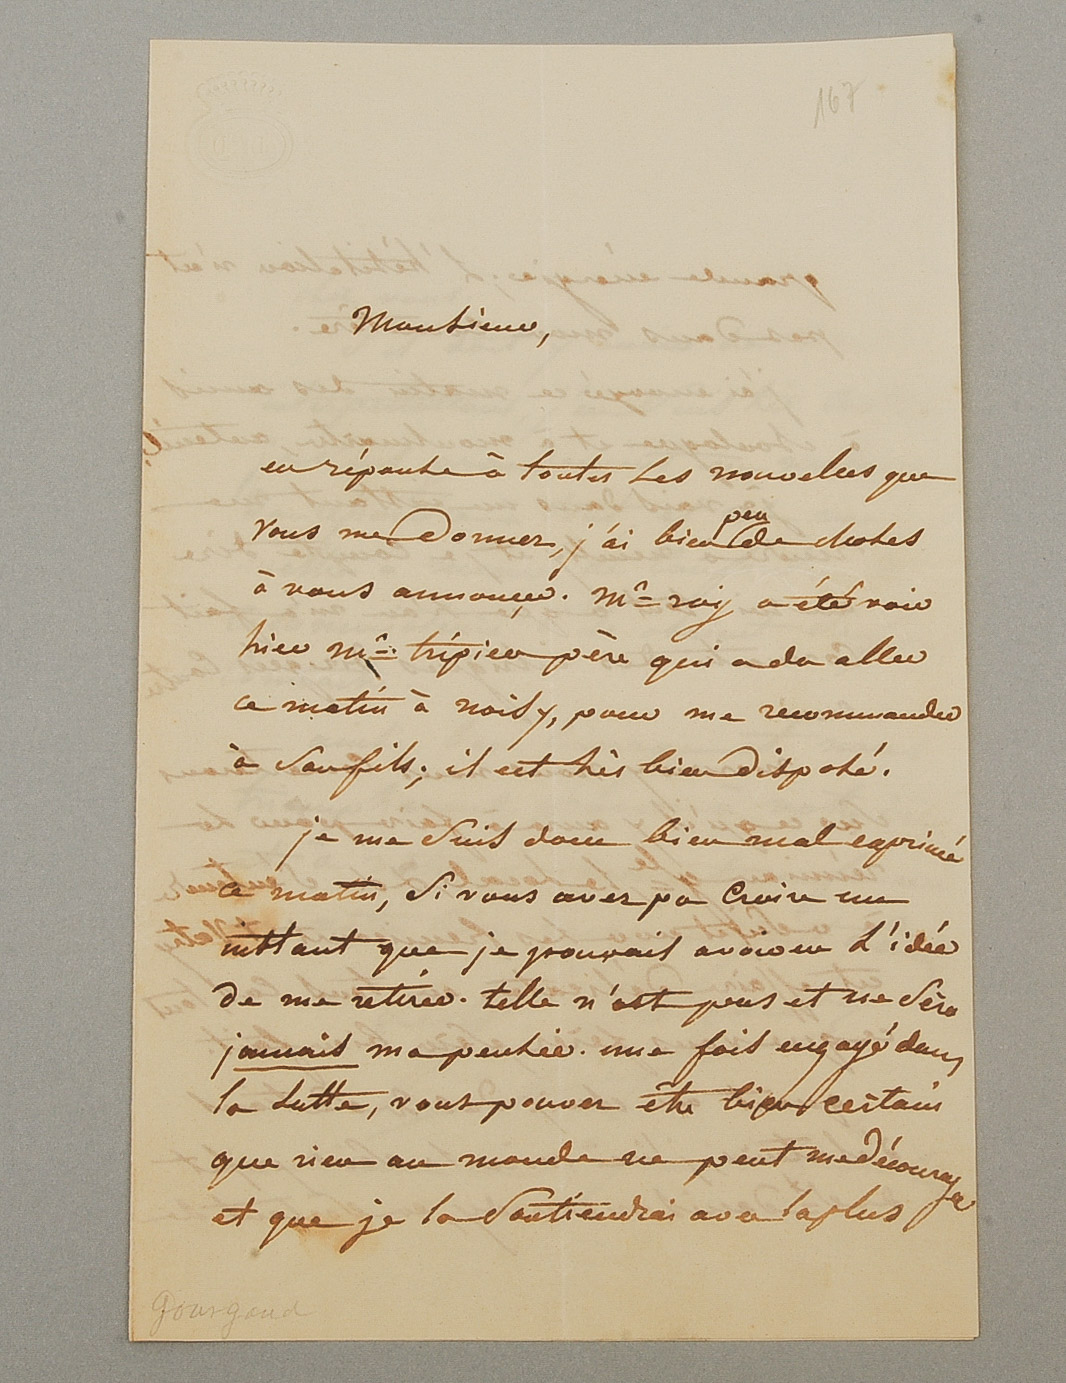 167
Monsieur,
en réponse à toutes les nouvelles que
vous me donnez, j'ai bien peu de choses
à vous annoncer. Mr. roy a été voir
hier Mr. tripier père qui a du aller
ce matin à noisy, pour me recommander
à son fils; il est très bien disposé.
je me suis donc bien mal exprimé
ce matin, si vous avez pu croire un
instant que je pouvais avoir eu l'idée
de me retirer. telle n'est pas et ne sera
jamais ma pensée. une fois engagé dans
la lutte, vous pouvez être bien certain
que rien au monde ne peut me décourager
et que je la soutiendrai avec la plus
Gourgaud